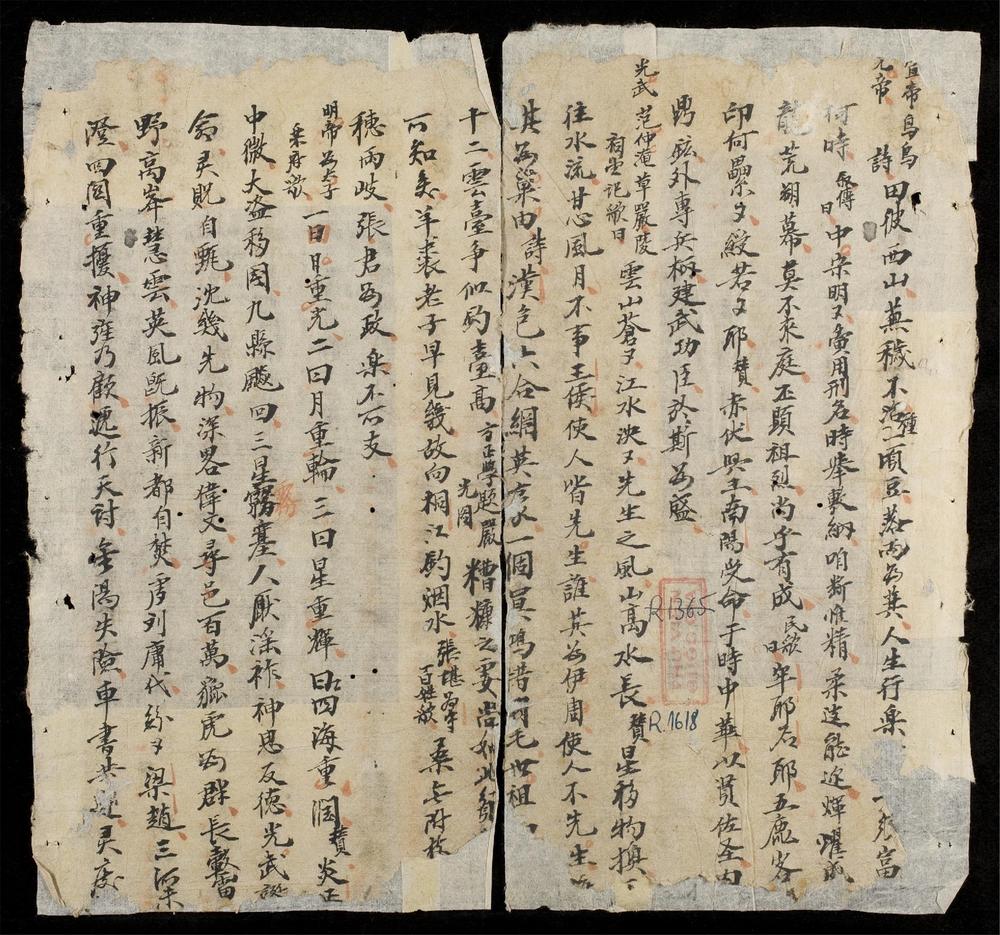 宣帝烏烏
元帝 詩 田彼西山蕪穢不治種一頃豆落而為萁人生行楽 須富
何時 史傳曰 中宗明々夤用刑名時舉敷納咱斯惟精柔遠能迩煇耀威
龍荒朔幕莫不来庭丕顕祖烈尚乎有成 民歌曰 牢耶石耶五鹿客
印何纍々綬若々耶 賛 赤伏興王南陽受命于時中華以賢佐圣内
鼎鉉外専兵柄建武功臣於斯為盛
光武 范仲淹草嚴陵祠堂記歌曰 雲山蒼々江水泱々先生之風山高水長 賛 星移物換
往水流甘心風月不事王侯使人皆先生誰其為伊周使人不先生
其為巢由 詩 漢包六合網英彦一個冥鴻惜羽毛世祖
十二雲臺争似釣臺髙 方正學題嚴光図 糟糠之妻尚如此
可知矣羊裘老子早見幾故向桐江釣烟水 張堪為守百姓歌 桑无附枝
穂両岐張君為政楽不可支
明帝為太子楽府歌 一曰日重光二曰月重輪三曰星重輝四曰海重潤 賛 炎正
中微大盗移国九縣飈回三星霧塞人厭淫祚神思反徳光武誕
命灵貺自甄沈幾先物深畧偉文尋邑百萬貔虎為群長轂雷
野高峯慧雲英風既振新都自焚虔刘庸代紛々梁趙三深
澄四図重擾神旌乃顧逓行天討金湯失險車書共道灵慶
R.1365
R.1618